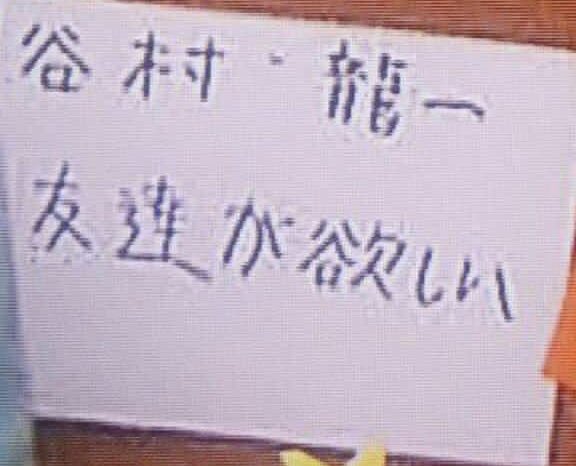 谷村・龍一
友達が欲しい